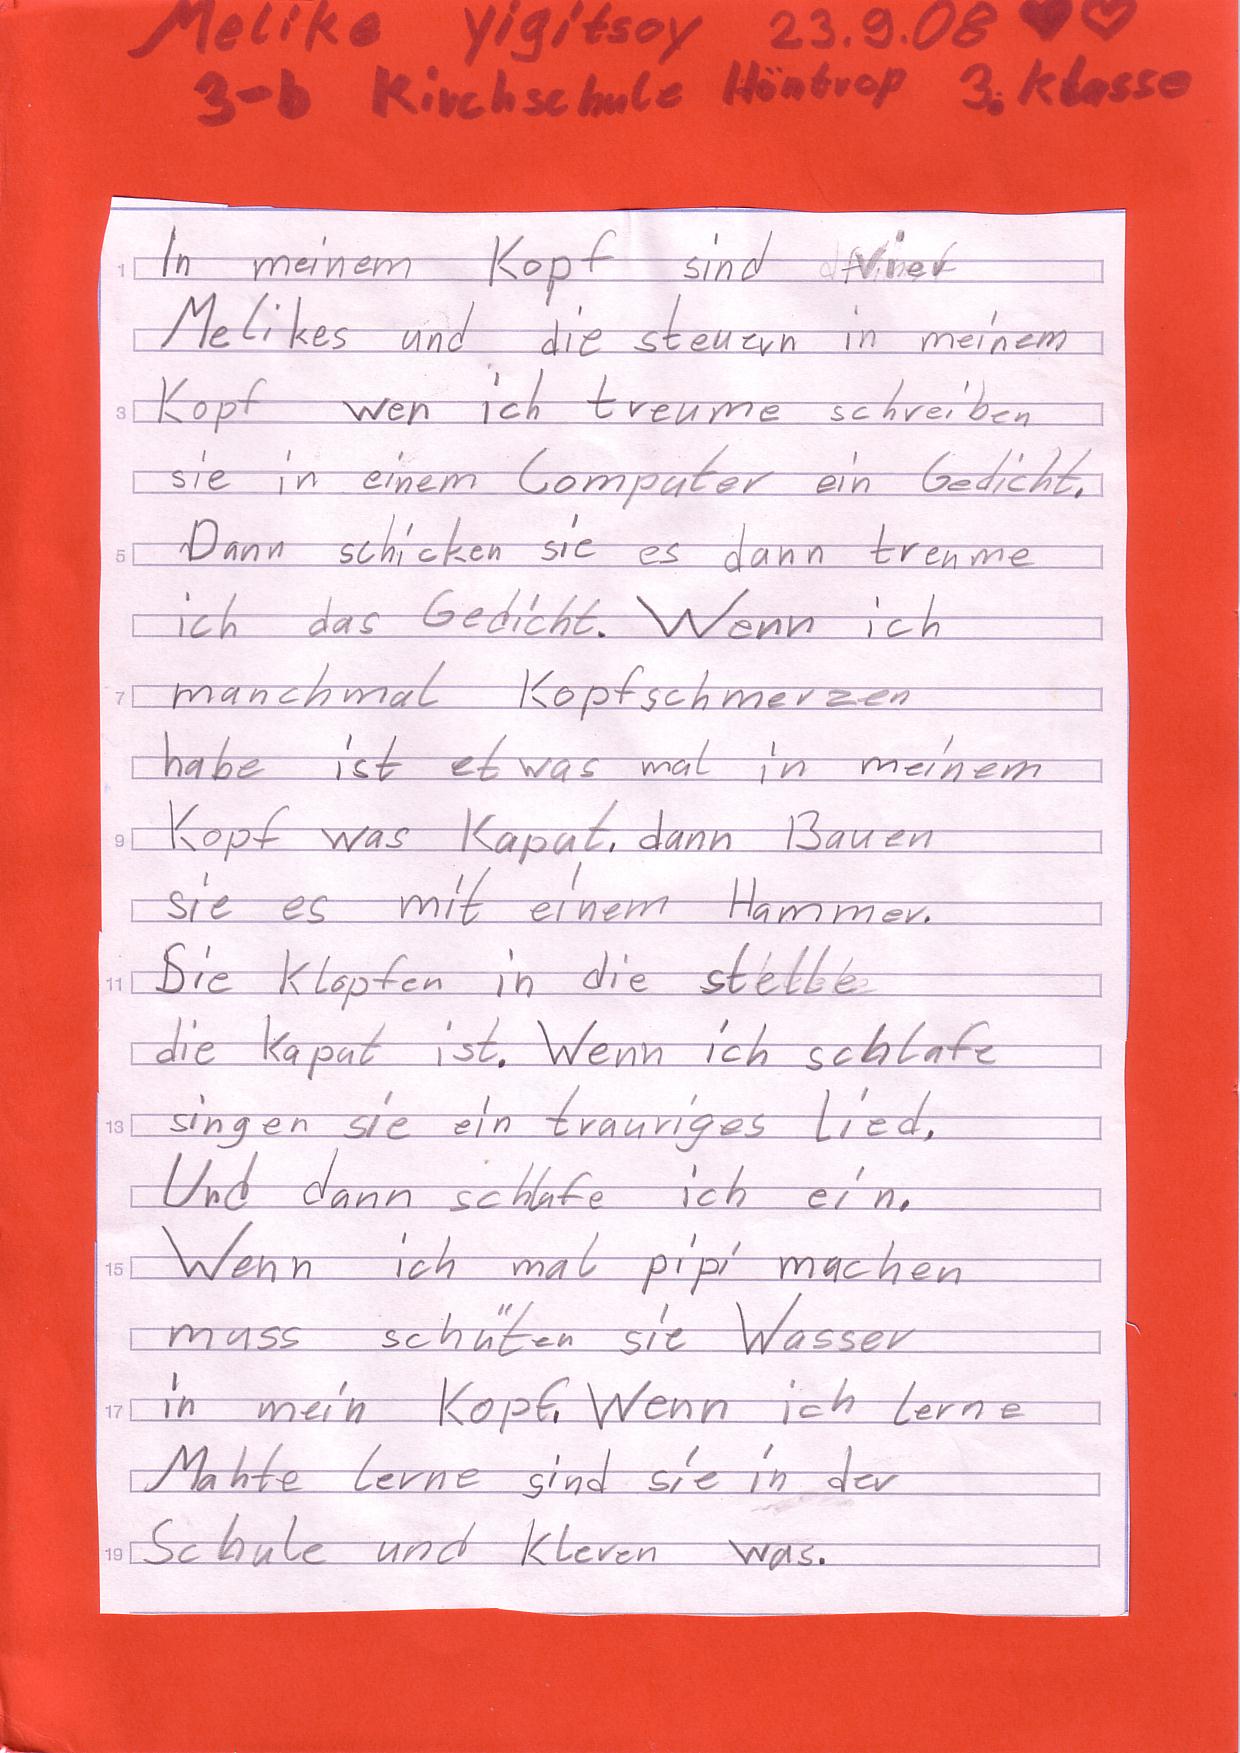 Melike Yigitsoy 23.9.08
3-b Kirchschule Höntrop 3. Klasse
1 In meinem Kopf sind vier
Melikes und die steuern in meinem
3 Kopf wen ich treume schreiben
sie in einem Computer ein Gedicht.
5 Dann schicken sie es dann treume
ich das Gedicht. Wenn ich
7 manchmal Kopfschmerzen
habe ist etwas mal in meinem
9 Kopf was Kaput. dann Bauen
sie es mit einem Hammer.
11 Sie Klopfen in die stelle
die kaput ist. Wenn ich schlafe
13 singen sie ein trauriges Lied.
Und dann schlafe ich ein.
15 Wenn ich mal pipi machen
muss schüten sie Wasser
17 in mein Kopf. Wenn ich lerne
Mahte lerne sind sie in der
19 Schule und kleren was.